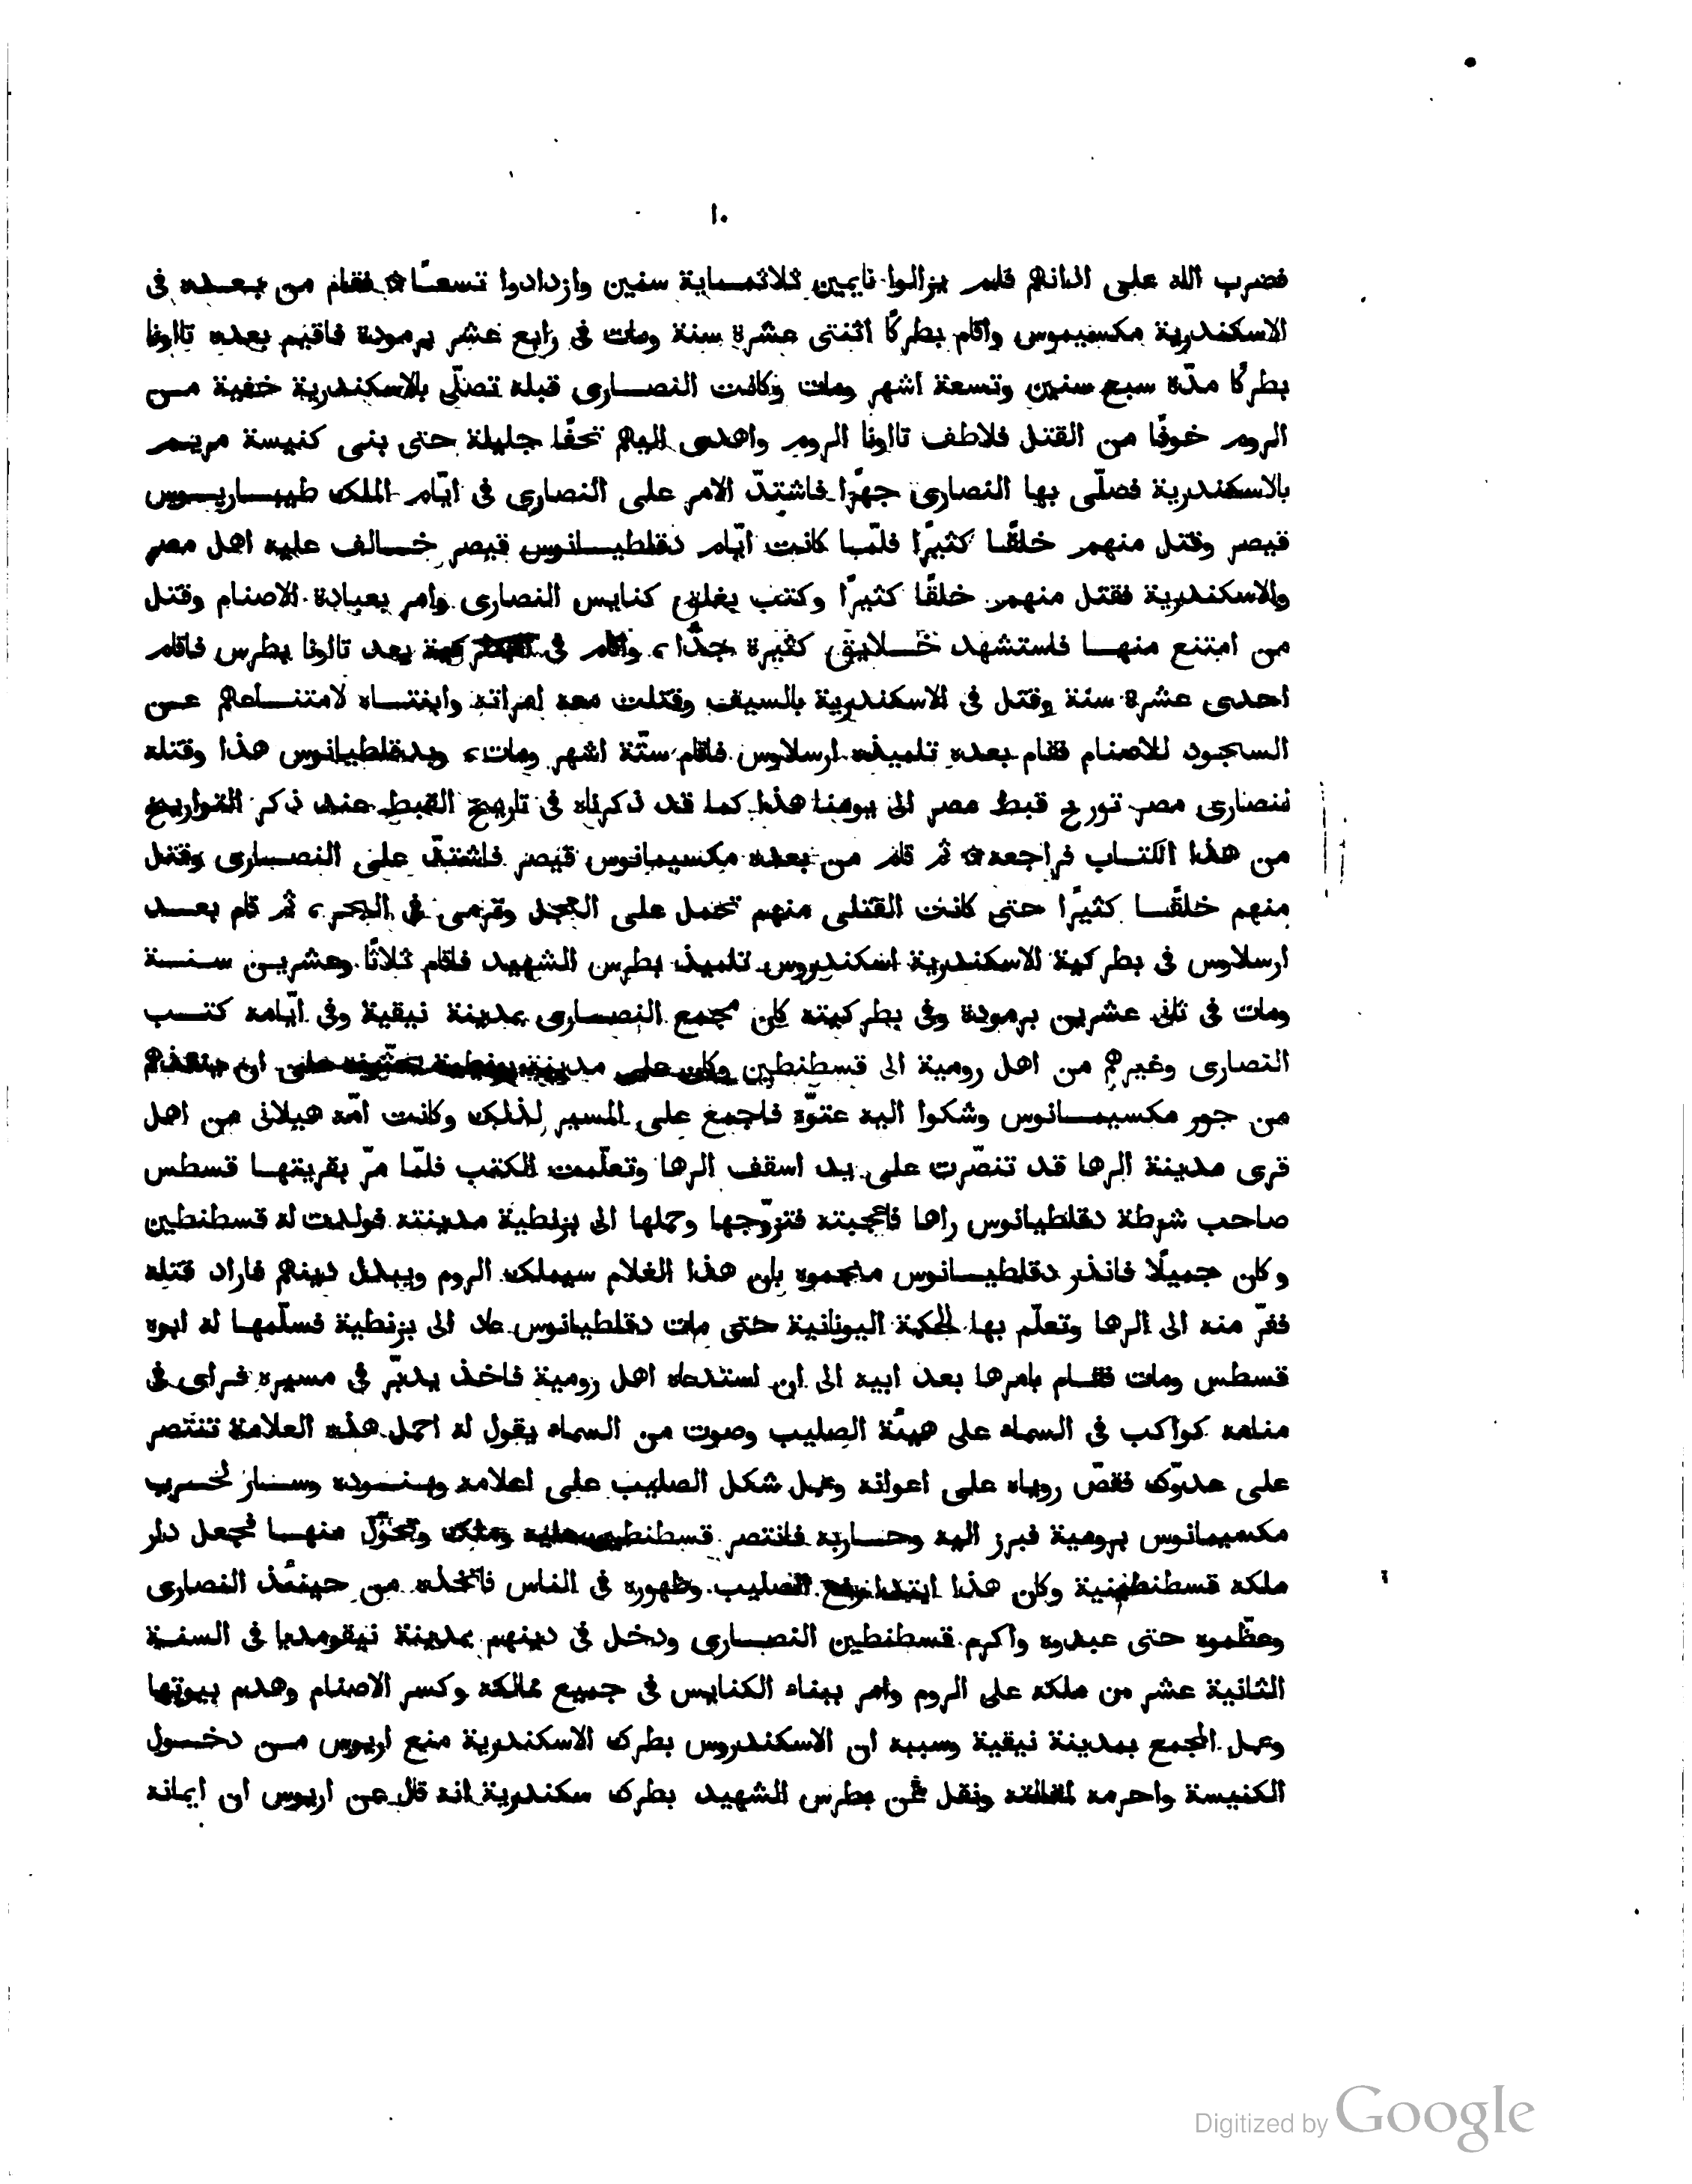 ١٠
فضرب الله على اذانهم فلم يزالوا نايمين ثلاثماية سنين وازدادوا تسعًا ۞ فقام من بعده فى
الاسكندرية مكسيموس واقام بطركًا اثنتى عشرة سنة ومات فى رابع عشر برمودة فاقيم بعده تااونا
بطركًا مدّة سبع سنين وتسعة اشهر ومات وكانت النصارى قبله تصلّى بالاسكندرية خفية من
الروم خوفًا من القتل فلاطف تااونا الروم واهدى اليهم تحفًا جليلة حتى بنى كنيسة مريم
بالاسكندرية فصلّى بها النصارى جهرًا فاشتدّ الامر على النصارى فى ايّام الملك طيباريوس
قيصر وقتل منهم خلقًا كثيرًا فلمّا كانت ايّام دقلطيانوس قيصر خالف عليه اهل مصر
والاسكندرية فقتل منهم خلقًا كثيرًا وكتب بغلق كنايس النصارى وامر بعبادة الاصنام وقتل
من امتنع منها فاستشهد خلايق كثيرة جدًّا، واقام فى بعد تااونا بطرس فاقام
احدى عشرة سنة وقتل فى الاسكندرية بالسيف وقتلت معه امراته وابنتاه لامتناعهم عن
السجود للاصنام فقام بعده تلميذه ارسلاوس فاقام ستّة اشهر ومات، وبدقلطيانوس هذا وقتله
لنصارى مصر تورخ قبط مصر الى يومنا هذا كما قد ذكرناه فى تاريخ القبط عند ذكر التواريخ
من هذا الكتاب فراجعه ۞ ثم قام من بعده مكسيمانوس قيصر فاشتدّ على النصارى وقتل
منهم خلقًا كثيرًا حتى كانت القتلى منهم تحمل على العجل وترمى فى البحر، ثم قام بعد
ارسلاوس فى بطركية الاسكندرية اسكندروس تلميذ بطرس الشهيد فاقام ثلاثًا وعشرين سنة
ومات فى ثانى عشرين برمودة وفى بطركيته كان مجمع النصارى بمدينة نيقية وفى ايّامه كتب
النصارى وغيرهم من اهل رومية الى قسطنطين وكان على مدينة بزنطية يحثّونه على ان ينقذهم
من جور مكسيمانوس وشكوا اليه عتوّه فاجمع على المسير لذلك وكانت امّه هيلانى من اهل
قرى مدينة الرها قد تنصّرت على يد اسقف الرها وتعلّمت الكتب فلمّا مرّ بقريتها قسطس
صاحب شرطة دقلطيانوس راها فاعجبته فتزوّجها وحملها الى بزنطية مدينته فولدت له قسطنطين
وكان جميلًا فانذر دقلطيانوس منجموه بان هذا الغلام سيملك الروم ويبدل دينهم فاراد قتله
ففرّ منه الى الرها وتعلّم بها الحكمة اليونانية حتى مات دقلطيانوس عاد الى بزنطية فسلّمها له ابوه
قسطس ومات فقام بامرها بعد ابيه الى ان استدعاه اهل رومية فاخذ يدبّر فى مسيره فراى فى
منامه كواكب فى السماء على هيئة الصليب وصوت من السماء يقول له احمل هذه العلامة تنتصر
على عدوّك فقصّ روياه على اعوانه وعمل شكل الصليب على اعلامه وبنوده وسار لحرب
مكسيمانوس برومية فبرز اليه وحاربه فانتصر قسطنطين عليه وملك وتحوّل منها فجعل دار
ملكه قسطنطينية وكان هذا ابتدا رفع الصليب وظهوره فى الناس فاتّخذه من حينئذ النصارى
وعظّموه حتى عبدوه واكرم قسطنطين النصارى ودخل فى دينهم بمدينة نيقومديا فى السنة
الثانية عشر من ملكه على الروم وامر ببناء الكنايس فى جميع ممالكه وكسر الاصنام وهدم بيوتها
وعمل المجمع بمدينة نيقية وسببه ان الاسكندروس بطرك الاسكندرية منع اريوس من دخول
الكنيسة واحرمه لمقالته ونقل عن بطرس الشهيد بطرك سكندرية انه قال عن اريوس ان ايمانه
Digitized by Google